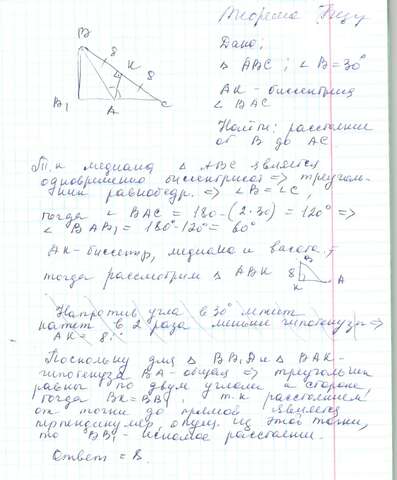 Теорема
Дано:
△ ABC ; ∠ B = 30°
AK - биссектриса
∠ BAC
Найти: расстояние
от B до AC
B
8
K
8
B₁
A
C
Т.к медиана △ ABC является
одновременно биссектрисой => треуголь-
ник равнобедр. => ∠B = ∠C,
тогда ∠ BAC = 180 - (2·30) = 120° =>
∠ BAB₁ = 180° - 120° = 60°
AK - биссектр, медиана и высота
тогда рассмотрим △ ABK
B
8
K
A
Напротив угла в 30° лежит
катет в 2 раза меньше гипотенузы =>
AK = 8
Поскольку для △ BB₁A и △ BAK -
гипотенуза BA - общая => треугольники
равны по двум углам и стороне,
тогда BK = BB₁, т.к расстоянием
от точки до прямой является
перпендикуляр, опущ. из этой точки,
то BB₁ - искомое расстояние.
Ответ = 8.